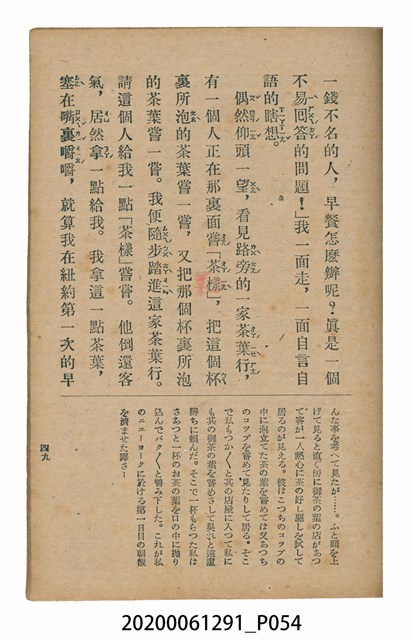 一錢不名的人，早餐怎麼辦呢？眞是一個
不易回答的問題！」我一面走，一面自言自
語的瞎想。
偶然仰頭一望，看見路旁的一家茶葉行，
有一個人正在那裏面嘗「茶樣」，把這個杯
裏所泡的茶葉嘗一嘗，又把那個杯裏所泡
的茶葉嘗一嘗。我便隨步踏進這家茶葉行。
請這個人給我一點「茶樣」嘗嘗。他倒還客
氣，居然拿一點給我。我拿這一點茶葉，
塞在嘴裏嚼嚼，就算我在紐約第一次的早
んな事を考へて見たが……。ふと頭を上
げて見ると直ぐ側に御茶の葉の店があつ
て客が一人熱心に茶の好し悪しを試して
居るのが見える。彼はこつちのコツプの
中に泡立てた茶の葉を嘗めては又あつち
のコツプのを嘗めて見たりして居る。そこ
で私もつか〱と其の店屋に入つて私に
も其の御茶の葉を嘗めさして呉れと遠慮
勝ちに頼んだ。そこで一杯もらつた私は
さあつと一杯のお茶の葉を口の中に抛り
込んでパク〱と嚼み下した。これが私
のニユーヨークに於ける第一日目の朝飯
を濟ませた譯さ─
四九
20200061291_P054